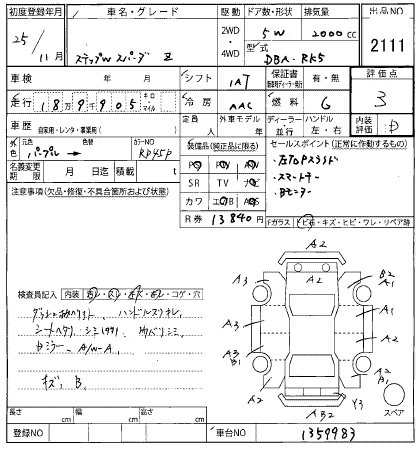 初度登録年月 車名・グレード 駆動 ドア数・形状 排気量 出品NO
25/11月 ステップW スパーダ Z 2WD・4WD 5W 2000cc 2111
型式 DBA-RK5
車検 年 月 シフト IAT 保証書 有・無 評価点 3
走行 189,905 キロ・マイル 冷房 AAC 燃料 G
車歴 自家用・レンタ・事業用( ) 定員 人 外車モデル 年 ディーラー・並行 ハンドル 左・右 内装評価 D
外色 元色 パープル → 色替 カラーNO RP45P
名義変更期限 月 日迄 積載 t
装備品(純正品に限る)
PS PW
SR TV ナビ
カワ エアB ABS
R券 13840円
セールスポイント(正常に作動するもの)
左右Pスライド
スマートキー
Bモニター
注意事項(欠品・修復・不具合箇所および状態)
Fガラス トビ石・キズ・ヒビ・ワレ・リペア跡
検査員記入 内装 コゲ・穴
ハンドルスリキレ
シートヘタリ
ミラー A/W-A
キズ B
A2
A3 A2 B2 A1
A3 A1
A3 B1 A2
A2 A2 B1
A2 Y3
AB2
スペア
長さ cm 幅 cm 高さ cm
登録NO 車台NO 1359983